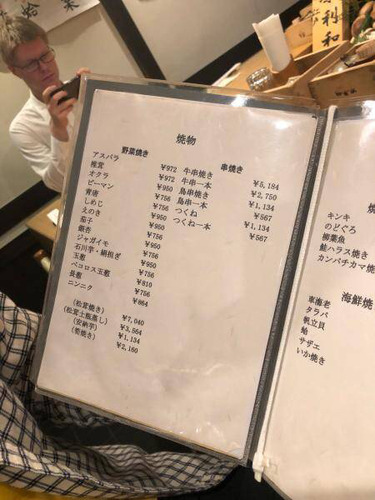 焼物
野菜焼き
アスパラ ¥972
椎茸 ¥972
オクラ ¥950
ピーマン ¥756
青唐 ¥950
しめじ ¥756
えのき ¥756
茄子 ¥950
銀杏 ¥756
ジャガイモ ¥950
石川芋・絹担ぎ ¥950
玉葱 ¥756
ペコロス玉葱 ¥810
長葱 ¥756
ニンニク ¥864
(松茸焼き) ¥7,040
(松茸土瓶蒸し) ¥3,564
(安納芋) ¥1,134
(筍焼き) ¥2,160
串焼き
牛串焼き ¥5,184
牛串一本 ¥2,750
鳥串焼き ¥1,134
鳥串一本 ¥567
つくね ¥1,134
つくね一本 ¥567
キンキ
のどぐろ
柳葉魚
鮭ハラス焼き
カンパチカマ焼
海鮮焼
車海老
タラバ
帆立貝
蛤
サザエ
いか焼き
利和